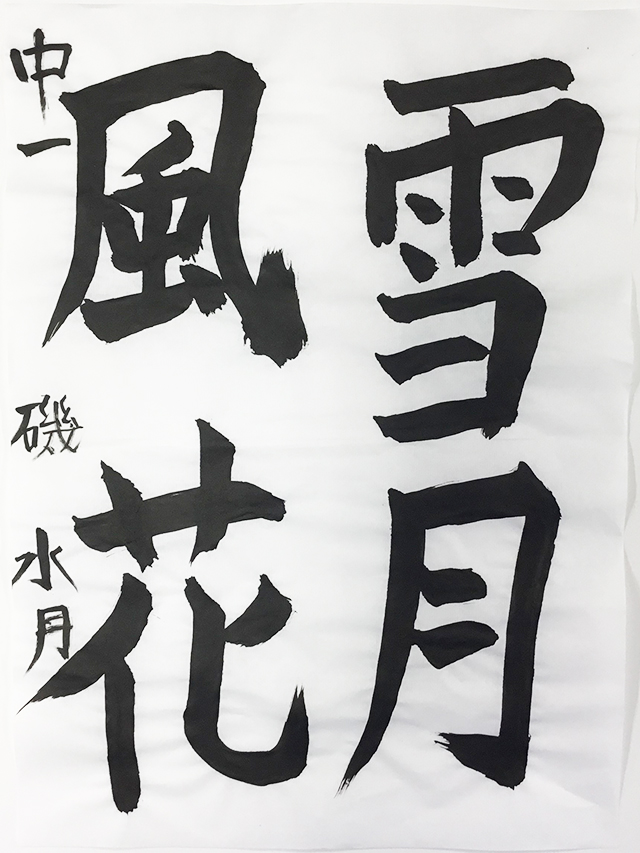 雪月
風花
中一 磯 水月